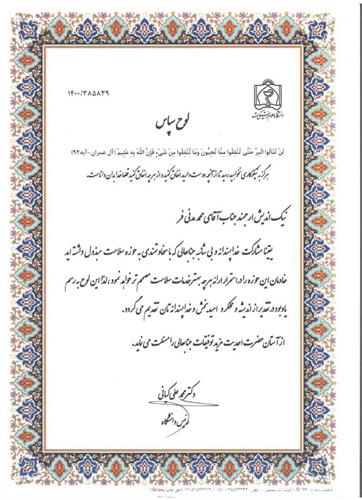 ۱۴۰۰/۳۸۵۸۳۹
لوح سپاس
لَنْ تَنَالُوا الْبِرَّ حَتَّى تُنْفِقُوا مِمَّا تُحِبُّونَ وَمَا تُنْفِقُوا مِنْ شَيْءٍ فَإِنَّ اللَّهَ بِهِ عَلِيمٌ (آل عمران - آیه ۹۲)
هرگز به نیکوکاری نخواهید رسید تا از آنچه دوست دارید انفاق کنید و از هر چه انفاق کنید قطعا خدا بدان داناست.
نیک اندیش ارجمند جناب آقای محمد مدنی فر
یقینا مشارکت خداپسندانه و بی شائبه جنابعالی که با سخاوتمندی به حوزه سلامت مبذول داشته اید
خادمان این حوزه را در استمرار ارائه هر چه بهتر خدمات سلامت مصمم تر خواهد نمود، لذا این لوح به رسم
یادبود در تقدیر از اندیشه و عملکرد امید بخش و خداپسندانه تان تقدیم می گردد.
از آستان حضرت احدیت مزید توفیقات جنابعالی را مسئلت می نماید.
دکتر محمد علی کیانی
رئیس دانشگاه